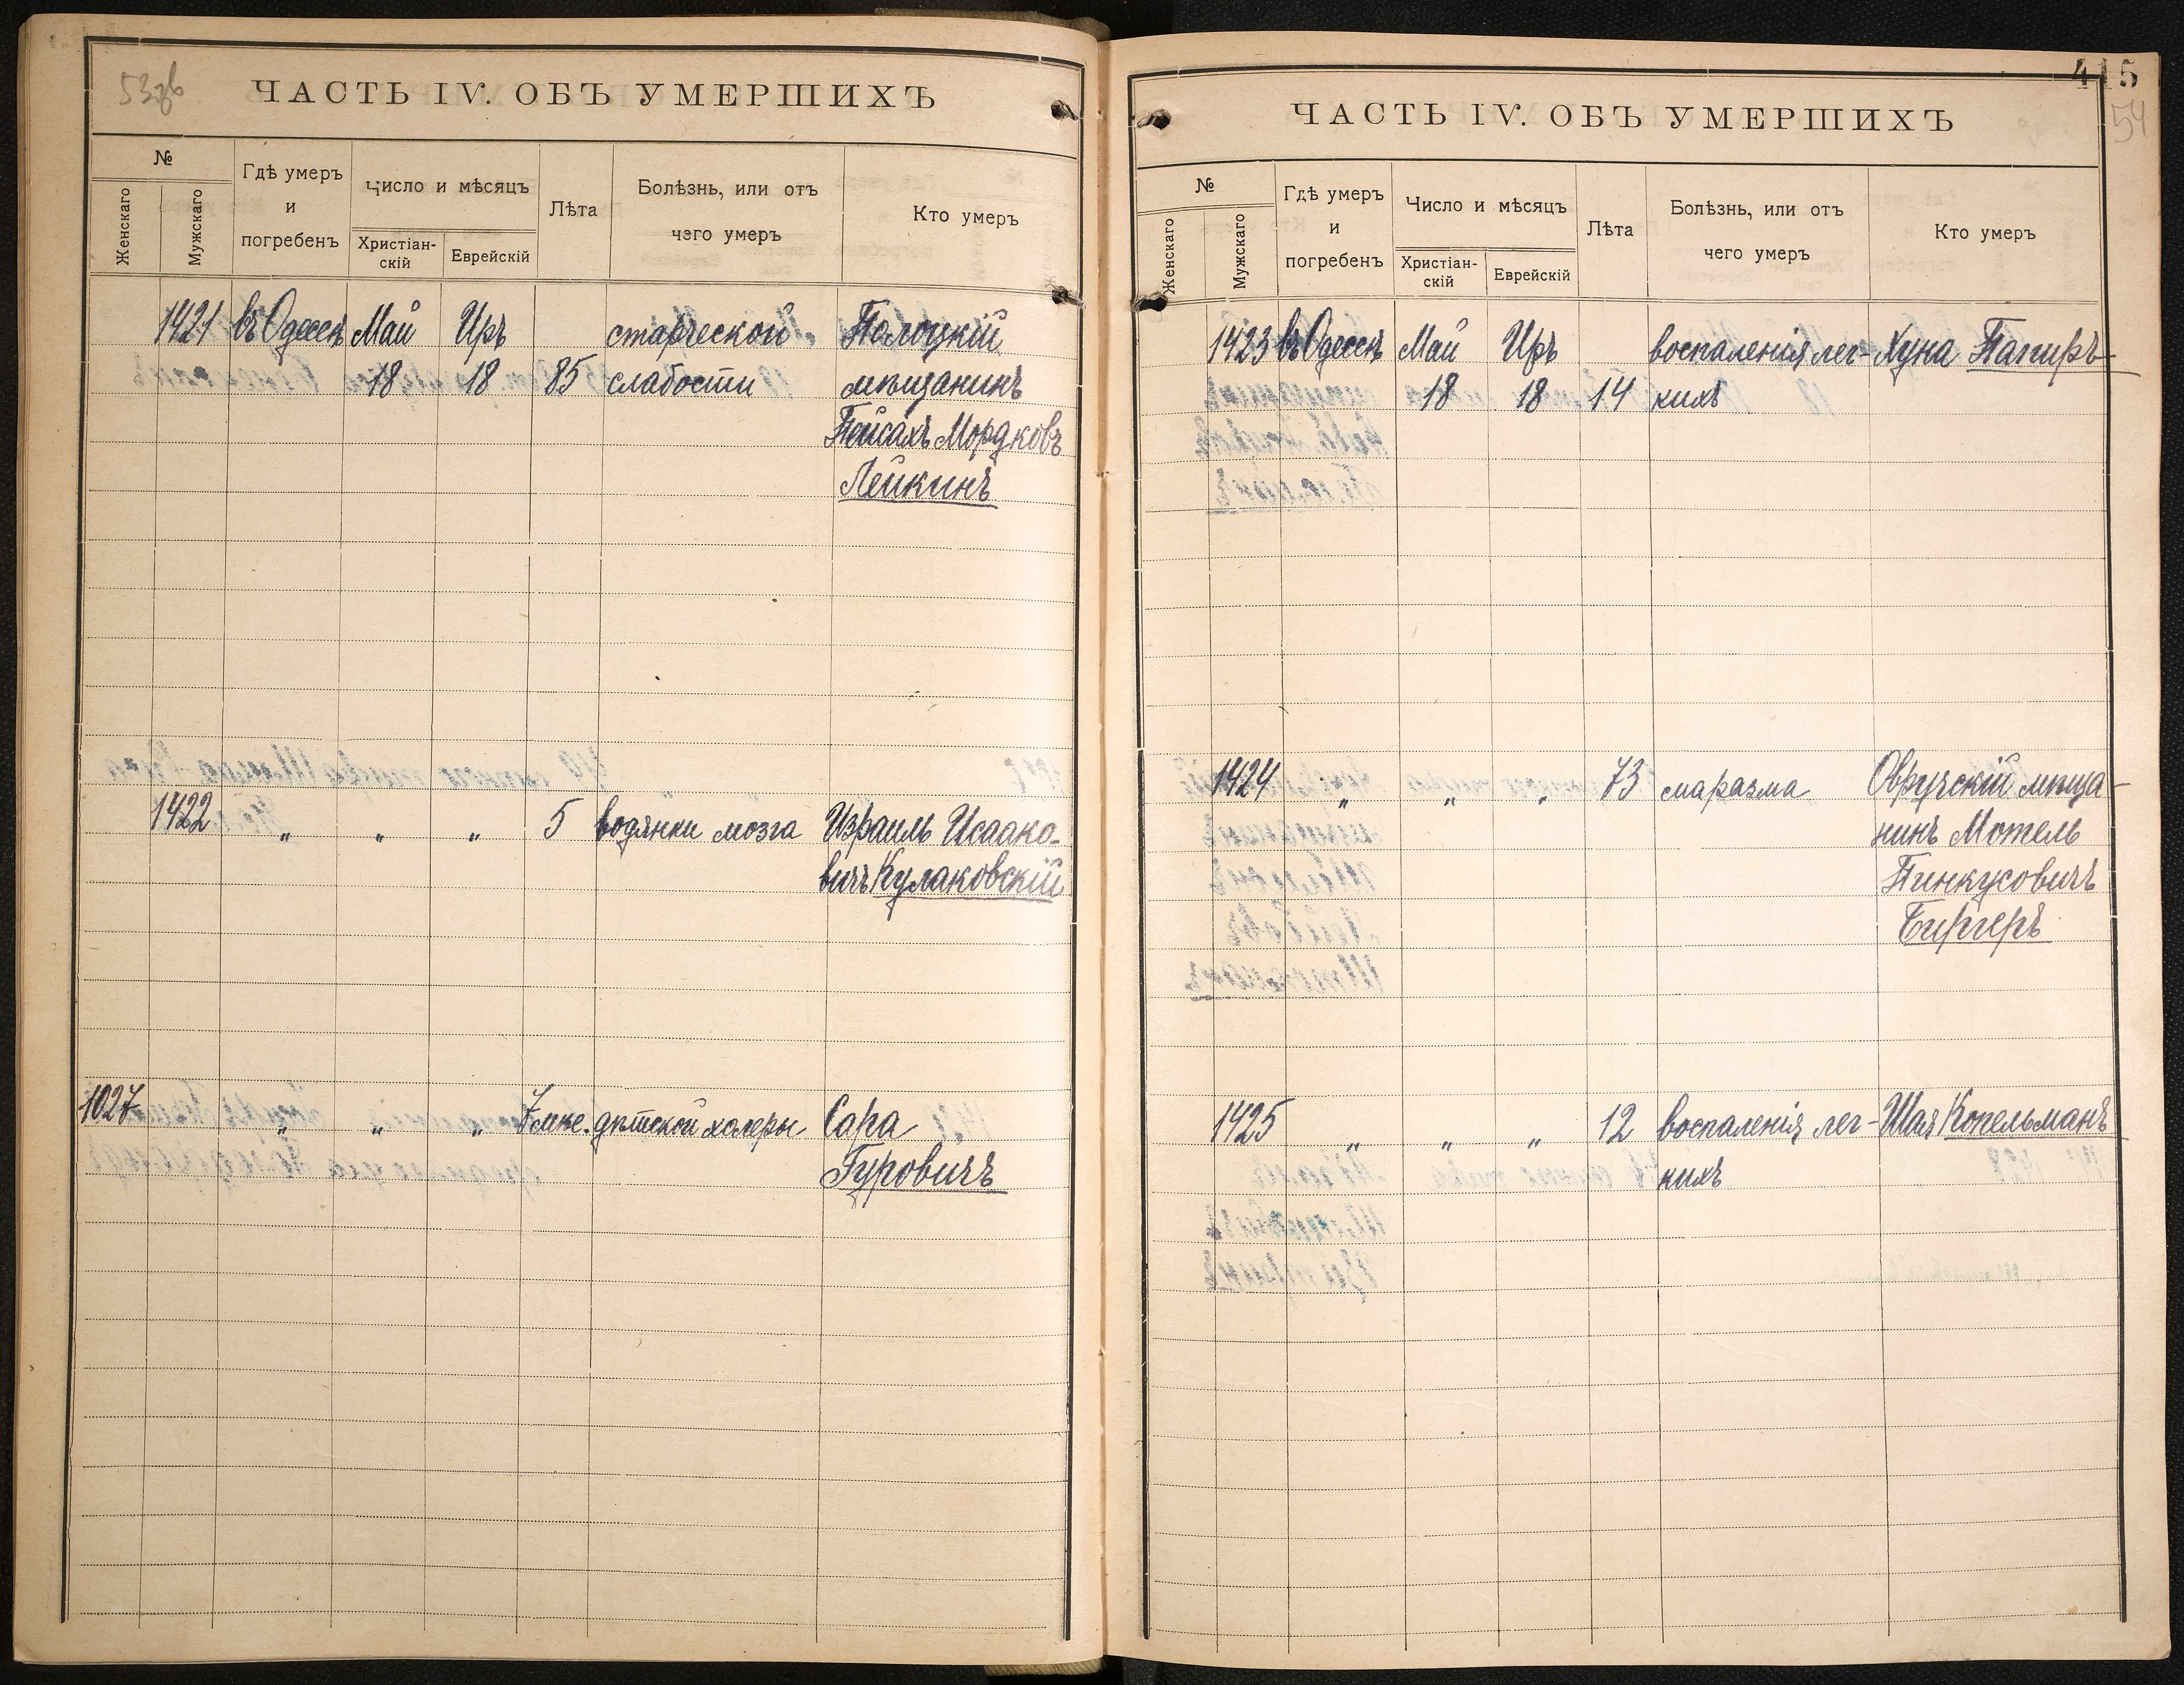 53об
ЧАСТЬ IV. ОБЪ УМЕРШИХЪ
№
Женскаго
Мужскаго
Гдѣ умеръ
и
погребенъ
число и мѣсяцъ
Христіан-
скій
Еврейскій
Лѣта
Болѣзнь, или отъ
чего умеръ
Кто умеръ
1421 въ Одессѣ Май Иръ старческой Полоцкій
18 18 85 слабости мѣщанинъ
Пейсахъ Мордковъ
Лейкинъ
1422 " " " 5 водянки мозга Израиль Исаако-
вичъ Кулаковскій
1027 " " " 7 мѣс. дѣтской холеры Сара
Гуровичъ
415
54
ЧАСТЬ IV. ОБЪ УМЕРШИХЪ
№
Женскаго
Мужскаго
Гдѣ умеръ
и
погребенъ
Число и мѣсяцъ
Христіан-
скій
Еврейскій
Лѣта
Болѣзнь, или отъ
чего умеръ
Кто умеръ
1423 въ Одессѣ Май Иръ воспаленія лег- Хуна Папиръ
18 18 14 кихъ
1424 " " " 73 маразма Овручскій мѣща-
нинъ Мотель
Пинкусовичъ
Биргеръ
1425 " " " 12 воспаленія лег- Шая Копельманъ
кихъ